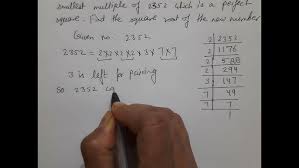 smallest multiple of 2352 which is a perfect
square. Find the square root of the new number
Given no. 2352
2352 = 2×2×2×2×3×7×7
3 is left for pairing
So 2352
2 2352
2 1176
2 588
2 294
3 147
7 49
7 7
1